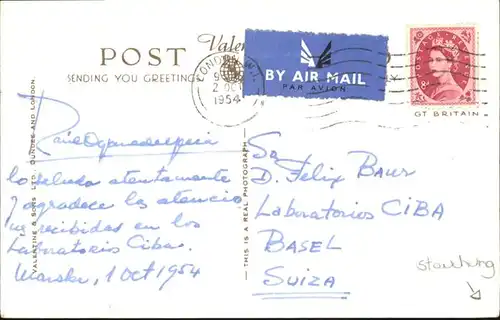 POST
Valen
SENDING YOU GREETING
BY AIR MAIL
PAR AVION
LONDON W.1.
2 OCT
1954
GT BRITAIN
VALENTINE & SONS LTD. DUNDEE AND LONDON.
THIS IS A REAL PHOTOGRAPH
lo saluda atentamente
y agradece las atencio
nes recibidas en los
Laboratorios Ciba.
1 Oct 1954
D. Felix Baur
Laboratorios CIBA
BASEL
SUIZA